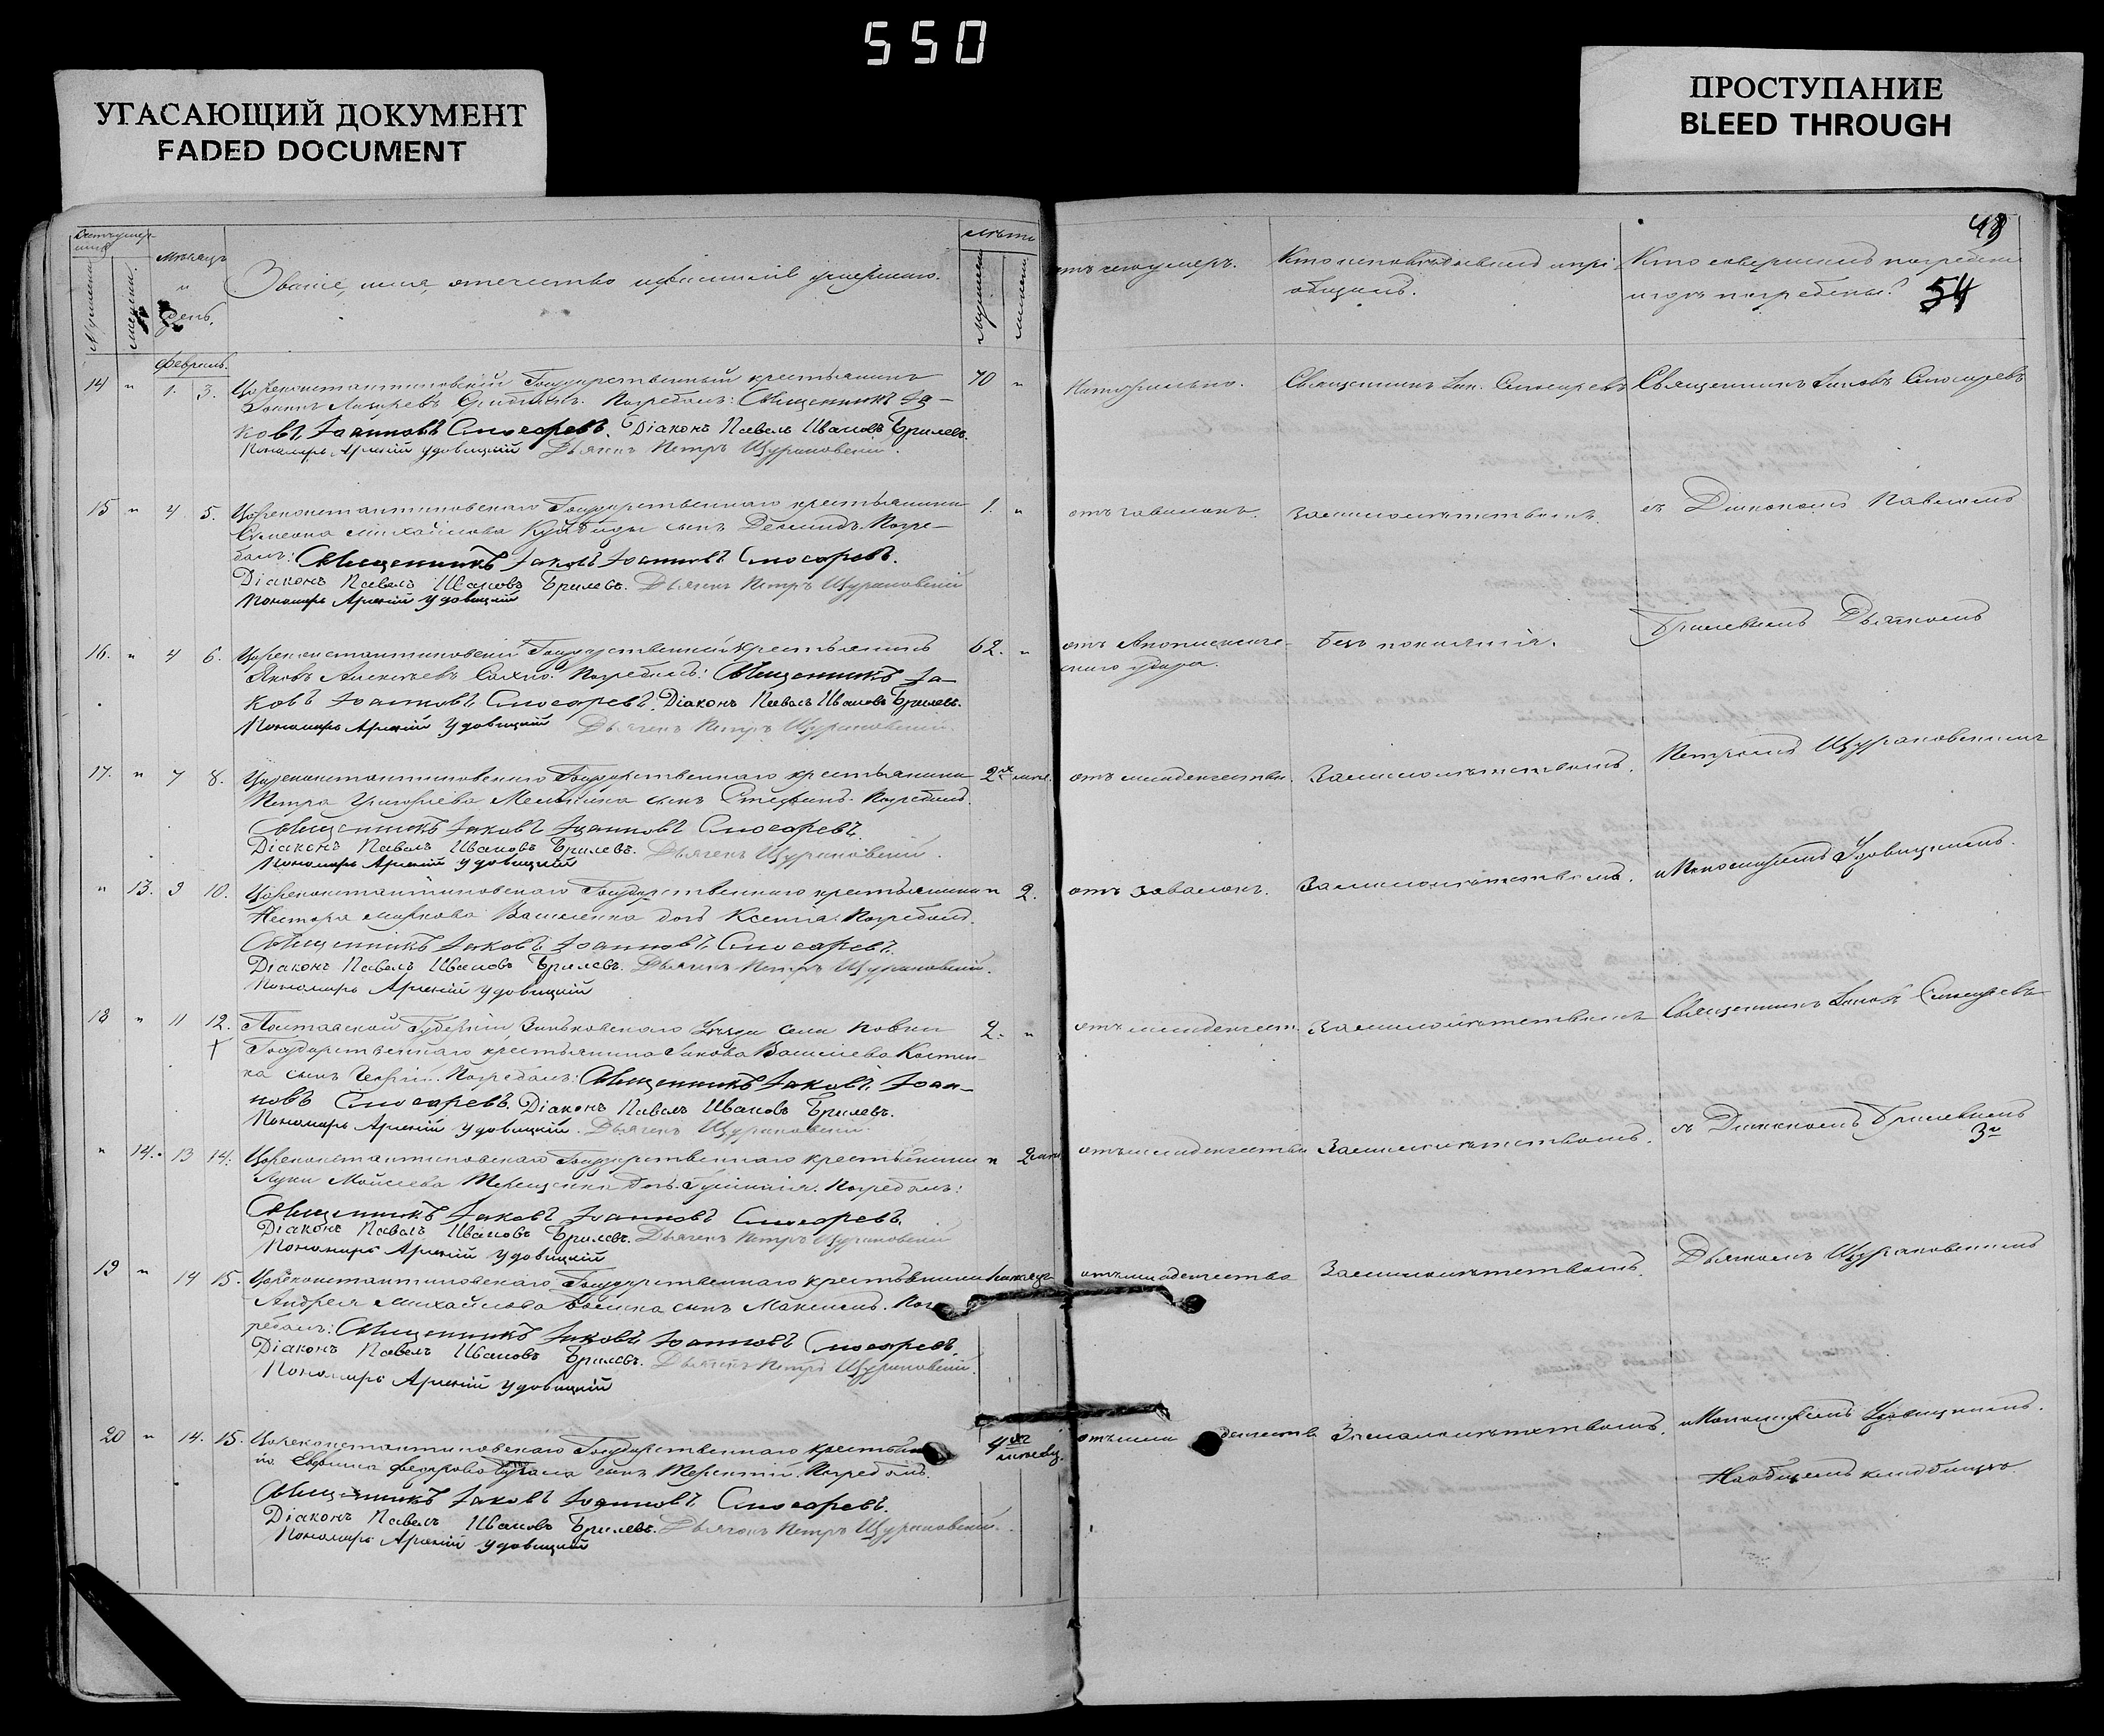 550
УГАСАЮЩИЙ ДОКУМЕНТ
FADED DOCUMENT
ПРОСТУПАНИЕ
BLEED THROUGH
54
Мѣсяцъ
и
день.
Званіе, имя, отчество и фамилія умершаго.
лѣта
отъ чего умеръ.
Кто исповѣдывалъ и прі-
общалъ.
Кто совершалъ погребеніе
и гдѣ погребены?
Февраль.
14 " 1. 3. Цареконстантиновскій Государственный крестьянинъ 70 "
Погребалъ: Священникъ Іа-
ковъ Іоанновъ Слюсаревъ. Діаконъ Павелъ Ивановъ Брилевъ.
Пономарь Арсений Удовицкій Дьячекъ Петръ Щурановскій.
Натурально. Священникъ Іак. Слюсаревъ Священникъ Іаковъ Слюсаревъ
15 " 4 5. Цареконстантиновскаго Государственнаго крестьянина 1. "
Симеона Михайлова сынъ Демидъ. Погре-
балъ: Священникъ Іаковъ Іоанновъ Слюсаревъ.
Діаконъ Павелъ Ивановъ Брилевъ. Дьячекъ Петръ Щурановскій
Пономарь Арсений Удовицкій
отъ завалокъ. За малолѣтствомъ. съ Діакономъ Павломъ
16. " 4 6. Цареконстантиновскій Государственный крестьянинъ 62. "
Яковъ Алексѣевъ Погребалъ: Священникъ Іа-
ковъ Іоанновъ Слюсаревъ. Діаконъ Павелъ Ивановъ Брилевъ.
Пономарь Арсений Удовицкій Дьячекъ Петръ Щурановскій.
отъ Апоплексиче-
скаго удара.
Безъ покаянія.
Брилевымъ Дьячкомъ
17. " 7 8. Цареконстантиновскаго Государственнаго крестьянина 2хъ
Петра Григорьева сынъ Стефанъ. Погребалъ.
Священникъ Іаковъ Іоанновъ Слюсаревъ.
Діаконъ Павелъ Ивановъ Брилевъ. Дьячекъ Щурановскій.
Пономарь Арсений Удовицкій
отъ младенчества. За малолѣтствомъ. Петромъ Щурановскимъ
" 13. 9 10. Цареконстантиновскаго Государственнаго крестьянина " 2.
Нестора Маркова Василенка дочь Ксенія. Погребалъ.
Священникъ Іаковъ Іоанновъ Слюсаревъ.
Діаконъ Павелъ Ивановъ Брилевъ. Дьячекъ Петръ Щурановскій.
Пономарь Арсений Удовицкій
отъ завалокъ. За малолѣтствомъ. и Пономаремъ Удовицкимъ.
18 " 11 12. Полтавской Губерніи Зиньковскаго Уѣзда села Ковки 2. "
Государственнаго крестьянина Іакова Васильева Костен-
ка сынъ Погребалъ: Священникъ Іаковъ Іоан-
новъ Слюсаревъ. Діаконъ Павелъ Ивановъ Брилевъ.
Пономарь Арсений Удовицкій. Дьячекъ Щурановскій.
отъ младенчест. За малолѣтствомъ Священникъ Іаковъ Слюсаревъ
" 14. 13 14. Цареконстантиновскаго Государственнаго крестьянина "
Луки Мойсеева Терещенка дочь Погребалъ:
Священникъ Іаковъ Іоанновъ Слюсаревъ.
Діаконъ Павелъ Ивановъ Брилевъ. Дьячекъ Петръ Щурановскій
Пономарь Арсений Удовицкій
отъ младенчества За малолѣтствомъ. съ Діакономъ Брилевымъ
19 " 14 15. Цареконстантиновскаго Государственнаго крестьянина
Андрея Михайлова сынъ Максимъ. Пог-
ребалъ: Священникъ Іаковъ Іоанновъ Слюсаревъ.
Діаконъ Павелъ Ивановъ Брилевъ. Дьячекъ Петръ Щурановскій.
Пономарь Арсений Удовицкій
отъ младенчества За малолѣтствомъ. Дьячкомъ Щурановскимъ
20 " 14. 15. Цареконстантиновскаго Государственнаго
Федорова сынъ Терентій. Погребалъ.
Священникъ Іаковъ Іоанновъ Слюсаревъ.
Діаконъ Павелъ Ивановъ Брилевъ. Дьячекъ Петръ Щурановскій.
Пономарь Арсений Удовицкій
4хъ месяц.
отъ младенчества За малолѣтствомъ. и Пономаремъ Удовицкимъ.
На общемъ кладбищѣ.